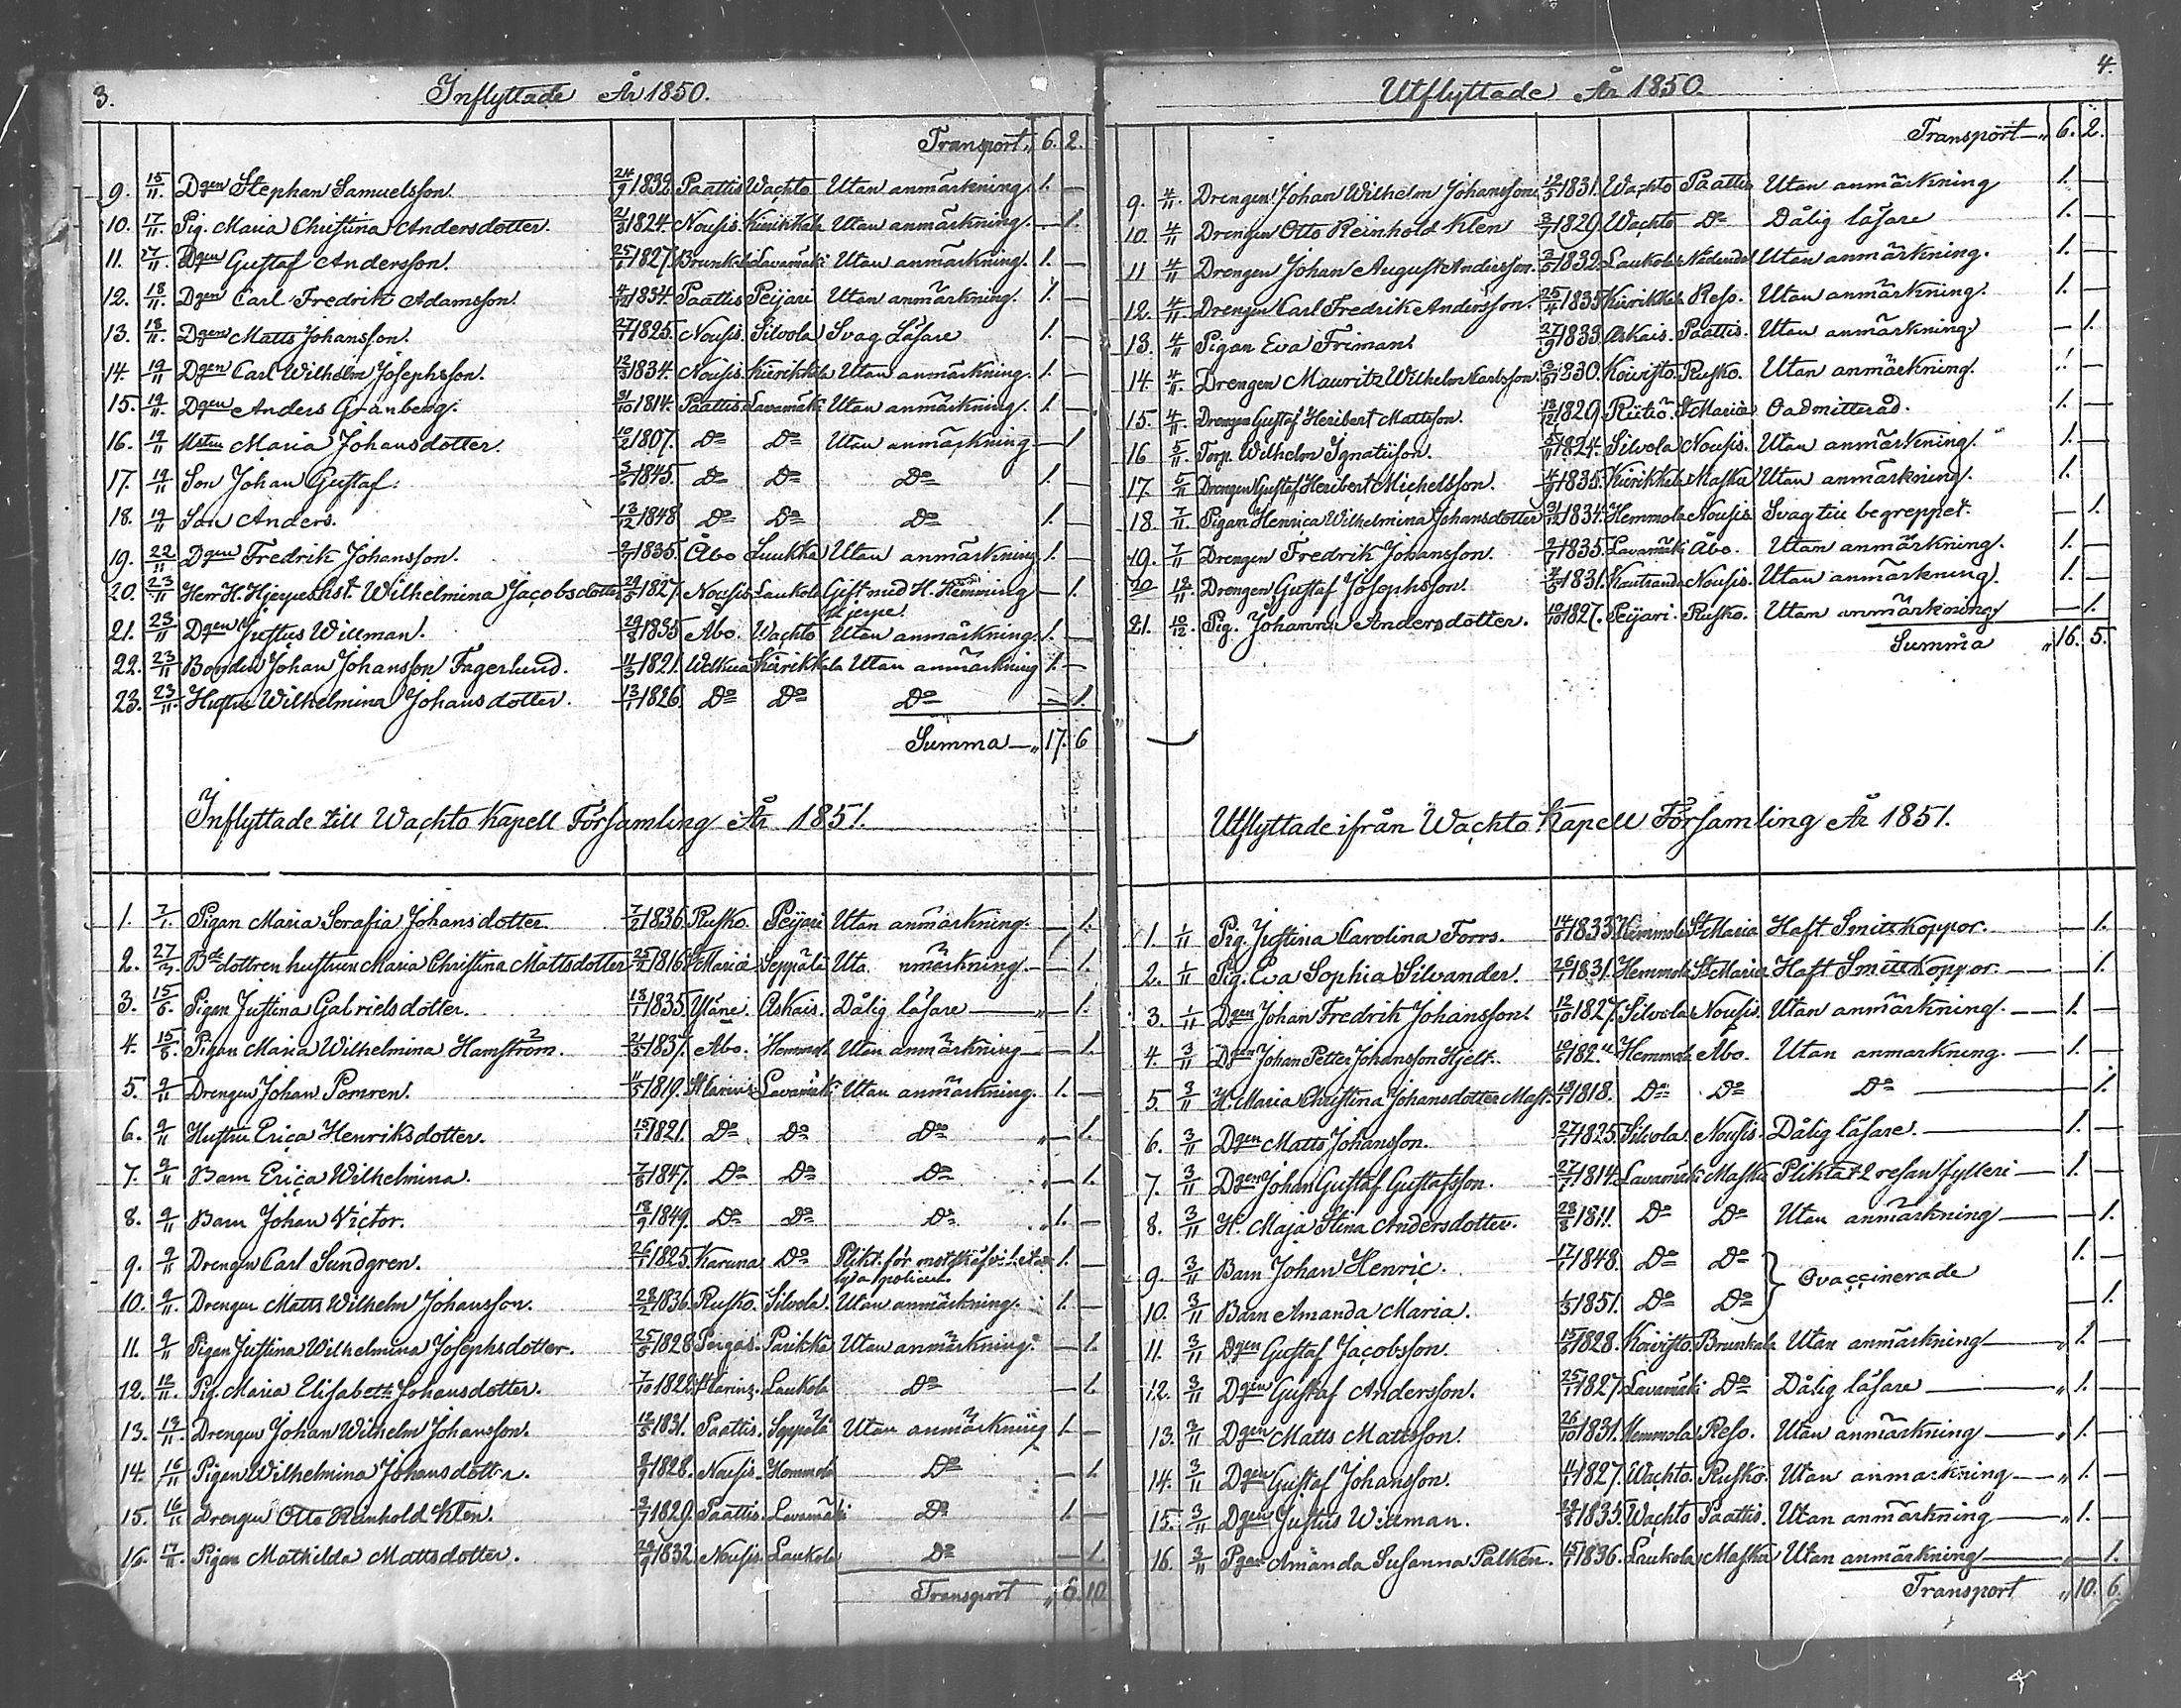 3.
Inflyttade År 1850.
Transport „ 6. 2.
9. 15/11. Dgen Stephan Samuelsson. 24/9 1832 Paattis Wachto Utan anmärkning. 1. —
10. 17/11. Pig. Maria Christina Andersdotter. 21/3 1824. Nousis. Kiirikkala Utan anmärkning. — 1.
11. 17/11. Dgen Gustaf Andersson. 25/1 1827. Brunkala Lavamäki Utan anmärkning. 1. —
12. 18/11. Dgen Carl Fredrik Adamsson. 4/12 1834. Paattis Peijari Utan anmärkning. 1. —
13. 18/11. Dgen Matts Johansson. 27/7 1825. Nousis. Silvola Svag Läsare 1. —
14. 19/11 Dgen Carl Wilhelm Josephsson. 12/3 1834. Nousis. Kiirikkala Utan anmärkning. 1. —
15. 19/11. Dgen Anders Granberg. 31/10 1814. Paattis Lavamäki Utan anmärkning. 1. —
16. 19/11 Hstru Maria Johansdotter. 10/2 1807. Do Do Utan anmärkning — 1
17. 19/11 Son Johan Gustaf. 3/6 1845. Do Do Do 1. —
18. 19/11 Son Anders. 13/12 1848 Do Do Do 1. —
19. 22/11 Dgen Fredrik Johansson. 2/7 1835. Åbo Luukka Utan anmärkning 1. —
20. 23/11 Herr H. Hjerpes hst. Wilhelmina Jacobsdotter 29/5 1827. Nousis Laukola Gift med H. Hemming — 1.
Hjerpe.
21. 23/11 Dgen Justus Willman. 29/8 1835 Åbo. Wachto Utan anmärkning. 1. —
22. 23/11 Bonden Johan Johansson Fagerlund. 11/3 1821. Welkua Kiirikkala Utan anmärkning 1. —
23. 23/11. Hustru Wilhelmina Johansdotter. 13/1 1826 Do Do Do — 1.
Summa — „ 17. 6
Inflyttade till Wachto Kapell Församling År 1851.
1. 7/1. Pigan Maria Serafia Johansdotter. 7/2 1836. Rusko. Peijari Utan anmärkning. — 1.
2. 27/3. Bde dottren hustrun Maria Christina Mattsdotter 25/7 1816. St Maria Seppälä Uta. nmärkning. — 1.
3. 15/6. Pigan Justina Gabrielsdotter. 18/1 1835. Yläne. Askais. Dålig läsare — „ — 1.
4. 15/8. Pigan Maria Wilhelmina Hamström. 21/5 1837. Åbo. Hemmola Utan anmärkning — 1.
5. 9/11 Drengen Johan Pomren. 11/5 1819. St Karins Lavamäki Utan anmärkning. 1. —
6. 9/11 Hustru Erica Henriksdotter. 15/1 1821. Do Do Do „ — 1.
7. 9/11 Barn Erica Wilhelmina. 7/8 1847. Do Do Do „ — 1.
8. 9/11 Barn Johan Victor. 18/9 1849. Do Do Do „ 1. —
9. 9/11 Drengen Carl Sundgren. 26/1 1825. Karuna Do Plikt. för motsträfvighet 1. —
10. 9/11. Drengen Matts Wilhelm Johansson. 28/2 1836. Rusko. Silvola. Utan anmärkning. 1. —
11. 9/11 Pigan Justina Wilhelmina Josephsdotter. 25/5 1828 Pargas. Parikka Utan anmärkning. — 1.
12. 12/11. Pig. Maria Elisabeth Johansdotter. 7/10 1822. St Karins. Laukola Do — 1.
13. 13/11. Drengen Johan Wilhelm Johansson. 12/5 1831. Paattis. Seppälä Utan anmärkning 1. —
14. 16/11 Pigan Wilhelmina Johansdotter. 8/9 1828. Nousis. Hemmola Do — 1.
15. 16/11 Drengen Otto Reinhold Klen. 3/7 1829. Paattis. Lavamäki Do 1. —
16. 17/11. Pigan Mathilda Mattsdotter. 29/9 1832. Nousis. Laukola Do — 1.
Transport „ 6. 10
4.
Utflyttade År 1850
Transport — „ 6. 2.
9. 4/11. Drengen Johan Wilhelm Johansson 12/5 1831. Wachto Paattis Utan anmärkning 1. —
10. 4/11 Drengen Otto Reinhold Klen 3/7 1829 Wachto Do Dålig läsare 1. —
11 4/11 Drengen Johan August Andersson. 2/5 1832. Laukola Nådendal Utan anmärkning. 1. —
12. 4/11. Drengen Carl Fredrik Andersson. 25/4 1835 Kiirikkala Reso. Utan anmärkning. 1. —
13. 4/11 Pigan Eva Friman. 27/9 1833. Askais. Paattis. Utan anmärkning. — 1.
14. 4/11. Drengen Mauritz Wilhelm Karlsson. 1830. Koivisto. Rusko. Utan anmärkning. 1. —
15. 4/11. Drengen Gustaf Heribert Mattsson. 18/12 1829 Riitiö St Maria Oadmitterad. 1. —
16 5/11. Torp. Wilhelm Ignatiison. 1824. Silvola Nousis. Utan anmärkning. 1. —
17. 5/11 Drengen Gustaf Heribert Michelsson. 4/9 1835. Kiirikkala Masku Utan anmärkning. 1.
18. 7/11. Pigan Henrica Wilhelmina Johansdotter 31/12 1834. Hemmola Nousis Svag till begreppet. — 1.
19. 7/11 Drengen Fredrik Johansson. 2/7 1835. Lavamäki Åbo. Utan anmärkning. 1. —
20 12/11. Drengen Gustaf Josephsson. 1831. Kautranda Nousis. Utan anmärkning. 1. —
21. 10/12. Pig. Johanna Andersdotter. 19/10 1827. Peijari. Rusko. Utan anmärkning — 1.
Summa „ 16. 5.
Utflyttade ifrån Wachto Kapell Församling År 1851.
1. 1/11 Pig. Justina Carolina Forss. 14/6 1833. Hemmola St Maria Haft Smittkoppor. — 1.
2. 1/11 Pig. Eva Sophia Silvander. 26/1 1831. Hemmola St Maria. Haft Smittkoppor. — 1.
3. 1/11 Dgen Johan Fredrik Johansson. 12/10 1827. Silvola Nousis. Utan anmärkning. — 1. —
4. 3/11 Dgen Johan Petter Johansson Hjelt. 10/6 182. Hemmola Åbo. Utan anmärkning. — 1. —
5. 3/11 H. Maria Christina Johansdotter Mast. 1818. Do Do Do — 1.
6. 3/11 Dgen Matts Johansson. 27/7 1825. Silvola. Nousis. Dålig läsare. — 1. —
7. 3/11 Dgen Johan Gustaf Gustafsson. 27/7 1814. Lavamäki Masku Pliktat 2 resan fylleri — 1. —
8. 3/11 H. Maja Stina Andersdotter. 28/8 1811. Do Do Utan anmärkning — 1.
9. 3/11 Barn Johan Henric. 17/1 1848. Do Do } Ovaccinerade 1. —
10. 3/11 Barn Amanda Maria. 1/3 1851. Do Do — 1.
11. 3/11 Dgen Gustaf Jacobsson. 15/6 1828. Koivisto Brunkala Utan anmärkning — „ 1. —
12. 3/11 Dgen Gustaf Andersson. 25/1 1827. Lavamäki Do Dålig läsare — „ 1. —
13. 3/11 Dgen Matts Mattsson. 26/10 1831. Hemmola Reso. Utan anmärkning — „ 1. —
14. 3/11 Dgen Gustaf Johansson. 11/7 1827. Wachto. Rusko. Utan anmärkning — „ 1. —
15. 3/11 Dgen Justus Willman. 29/8 1835. Wachto Paattis. Utan anmärkning — „ 1. —
16. 3/11 Pgan Amanda Susanna Palkén. 15/1 1836. Laukola Masku Utan anmärkning — „ — 1.
Transport „ 10. 6.